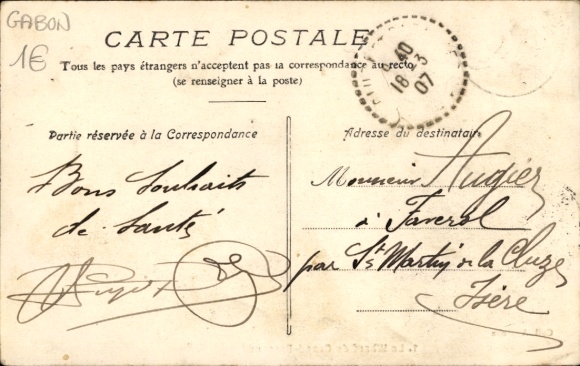 GABON
1€
CARTE POSTALE
Tous les pays étrangers n'acceptent pas la correspondance au recto
(se renseigner à la poste)
40
18 - 3
07
Partie réservée à la Correspondance
Bons Souhaits
de Santé
Adresse du destinataire
Monsieur Augier
à Faverol
par St Martin de la Cluze
Isère